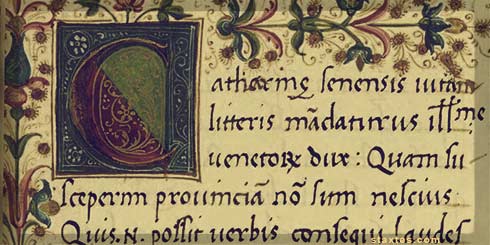 Catharinę senensis uitam
litteris mãdaturus ill^me
uenetoꝝ dux: Quam su
sceperim prouinciã nõ sum nescius
Quis .N. possit uerbis consequi laudes
staxtes.com